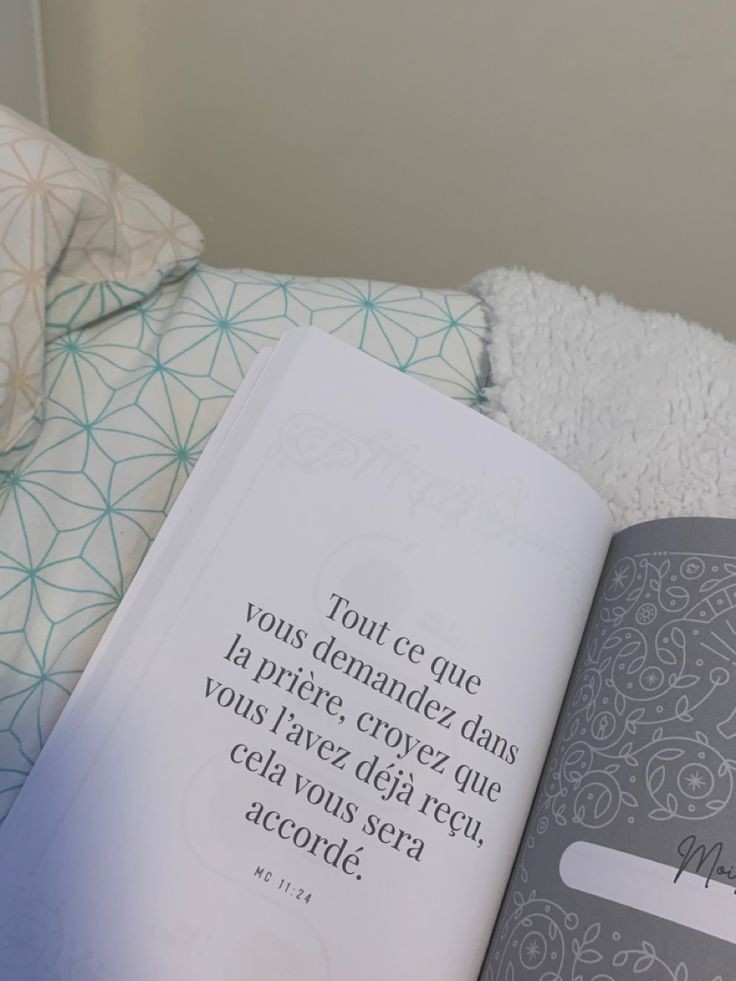 Tout ce que
vous demandez dans
la prière, croyez que
vous l'avez déjà reçu,
cela vous sera
accordé.
MC 11:24